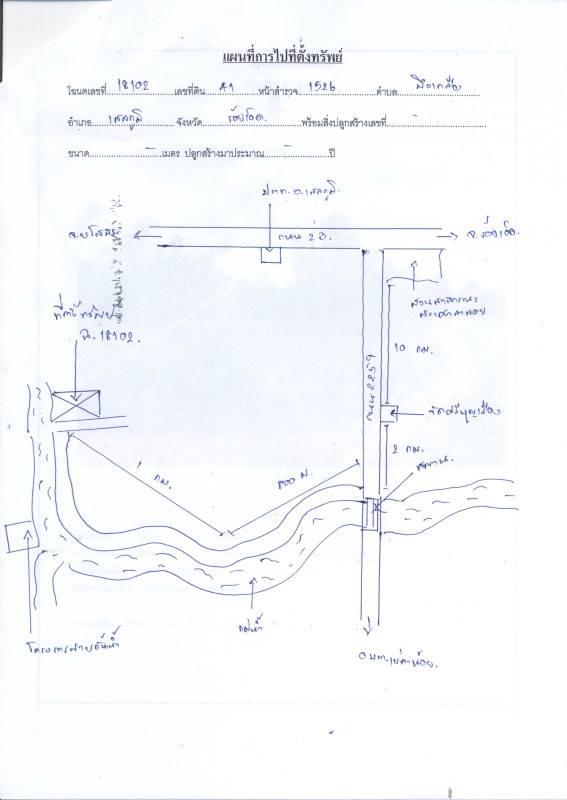 แผนที่การไปที่ตั้งทรัพย์
โฉนดเลขที่ 18102 เลขที่ดิน 41 หน้าสำรวจ 1526 ตำบล บึงเกลือ
อำเภอ เสลภูมิ จังหวัด ร้อยเอ็ด พร้อมสิ่งปลูกสร้างเลขที่ -
ขนาด - เมตร ปลูกสร้างมาประมาณ - ปี
ปตท. อ.เสลภูมิ
จ.ยโสธร
ถนน 23
จ.ร้อยเอ็ด
สวนสาธารณะ
ที่ตั้งทรัพย์
ฉ.18102
10 กม.
ถนน 2259
2 กม.
สะพาน
1 กม.
800 ม.
แม่น้ำ
โครงการฝายกั้นน้ำ